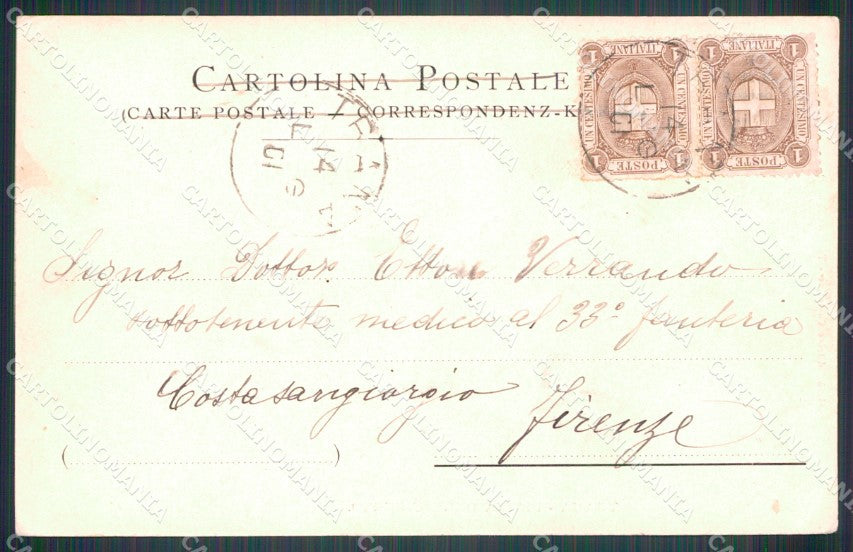 CARTOLINA POSTALE
(CARTE POSTALE – CORRESPONDENZ-K
1 ITALIANE 1
UN CENTESIMO
1 POSTE 1
1 ITALIANE 1
UN CENTESIMO
1 POSTE 1
14
01
Signor Dottor Ettore Verrando
sottotenente medico al 33° fanteria
Costasangiorgio
Firenze
( )
CARTOLINOMANIA